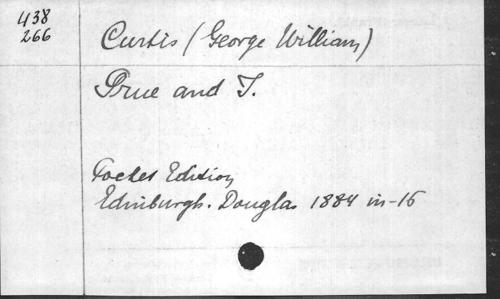 438
266
Curtis (George William)
Prue and I.
Pocket Edition
Edinburgh. Douglas 1884 in-16